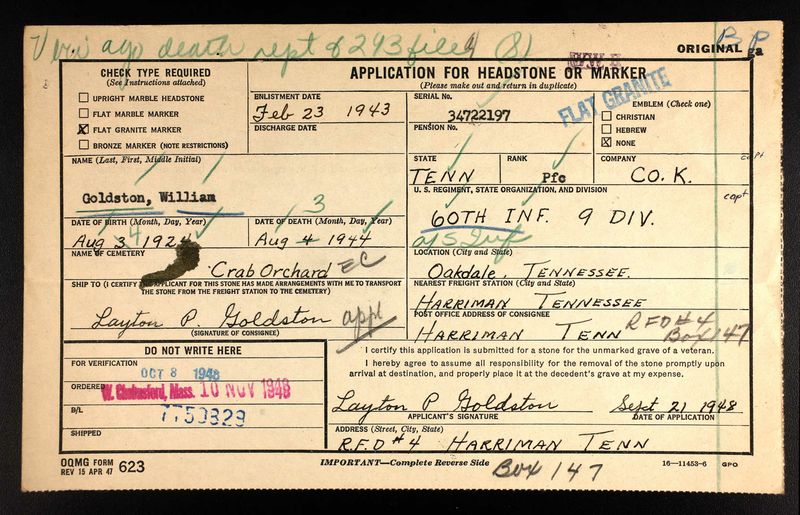 Veri ago death rept & 293 file (8)
B P
ORIGINAL ga
CHECK TYPE REQUIRED
(See Instructions attached)
UPRIGHT MARBLE HEADSTONE
FLAT MARBLE MARKER
X FLAT GRANITE MARKER
BRONZE MARKER (NOTE RESTRICTIONS)
APPLICATION FOR HEADSTONE OR MARKER
(Please make out and return in duplicate)
FLAT GRANITE
ENLISTMENT DATE
Feb 23 1943
DISCHARGE DATE
SERIAL No.
34722197
PENSION No.
EMBLEM (Check one)
CHRISTIAN
HEBREW
X NONE
NAME (Last, First, Middle Initial)
Goldston, William
STATE
TENN
RANK
Pfc
COMPANY
CO. K.
capt
U. S. REGIMENT, STATE ORGANIZATION, AND DIVISION
60TH INF. 9 DIV.
capt
DATE OF BIRTH (Month, Day, Year)
Aug 3 1924
4
DATE OF DEATH (Month, Day, Year)
Aug 4 1944
3
NAME OF CEMETERY
Crab Orchard EC
LOCATION (City and State)
Oakdale, TENNESSEE.
SHIP TO (I CERTIFY THE APPLICANT FOR THIS STONE HAS MADE ARRANGEMENTS WITH ME TO TRANSPORT
THE STONE FROM THE FREIGHT STATION TO THE CEMETERY)
Layton P Goldston appl
(SIGNATURE OF CONSIGNEE)
NEAREST FREIGHT STATION (City and State)
HARRIMAN TENNESSEE
POST OFFICE ADDRESS OF CONSIGNEE
HARRIMAN TENN RFD #4
Box 147
DO NOT WRITE HERE
FOR VERIFICATION
OCT 8 1948
ORDERED
W. Chelmsford, Mass. 10 NOV 1948
B/L
7753829
SHIPPED
I certify this application is submitted for a stone for the unmarked grave of a veteran.
I hereby agree to assume all responsibility for the removal of the stone promptly upon
arrival at destination, and properly place it at the decedent's grave at my expense.
Layton P Goldston Sept 21 1948
APPLICANT'S SIGNATURE DATE OF APPLICATION
ADDRESS (Street, City, State)
R.F.D #4 HARRIMAN TENN
Box 147
OQMG FORM
REV 15 APR 47 623
IMPORTANT—Complete Reverse Side
16—11453-6 GPO